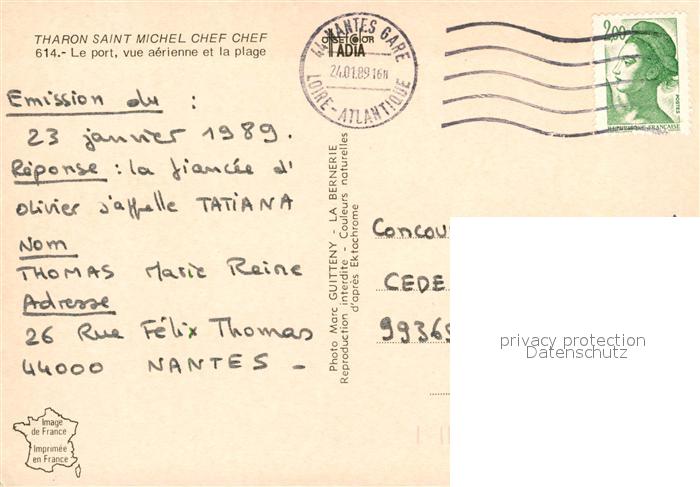 THARON SAINT MICHEL CHEF CHEF
614.- Le port, vue aérienne et la plage
OFFSET COLOR
IADIA
44 NANTES GARE
24.01.89 16H
LOIRE-ATLANTIQUE
2,00
POSTES
REPUBLIQUE FRANÇAISE
Emission du :
23 janvier 1989.
Réponse : la fiancée d'
olivier s'appelle TATIANA
Nom
THOMAS Marie Reine
Adresse
26 Rue Félix Thomas
44000 NANTES -
Photo Marc GUITTENY - LA BERNERIE
Reproduction interdite - Couleurs naturelles
d'après Ektachrome
Concou
CEDE
99365
privacy protection
Datenschutz
Image
de France
Imprimée
en France